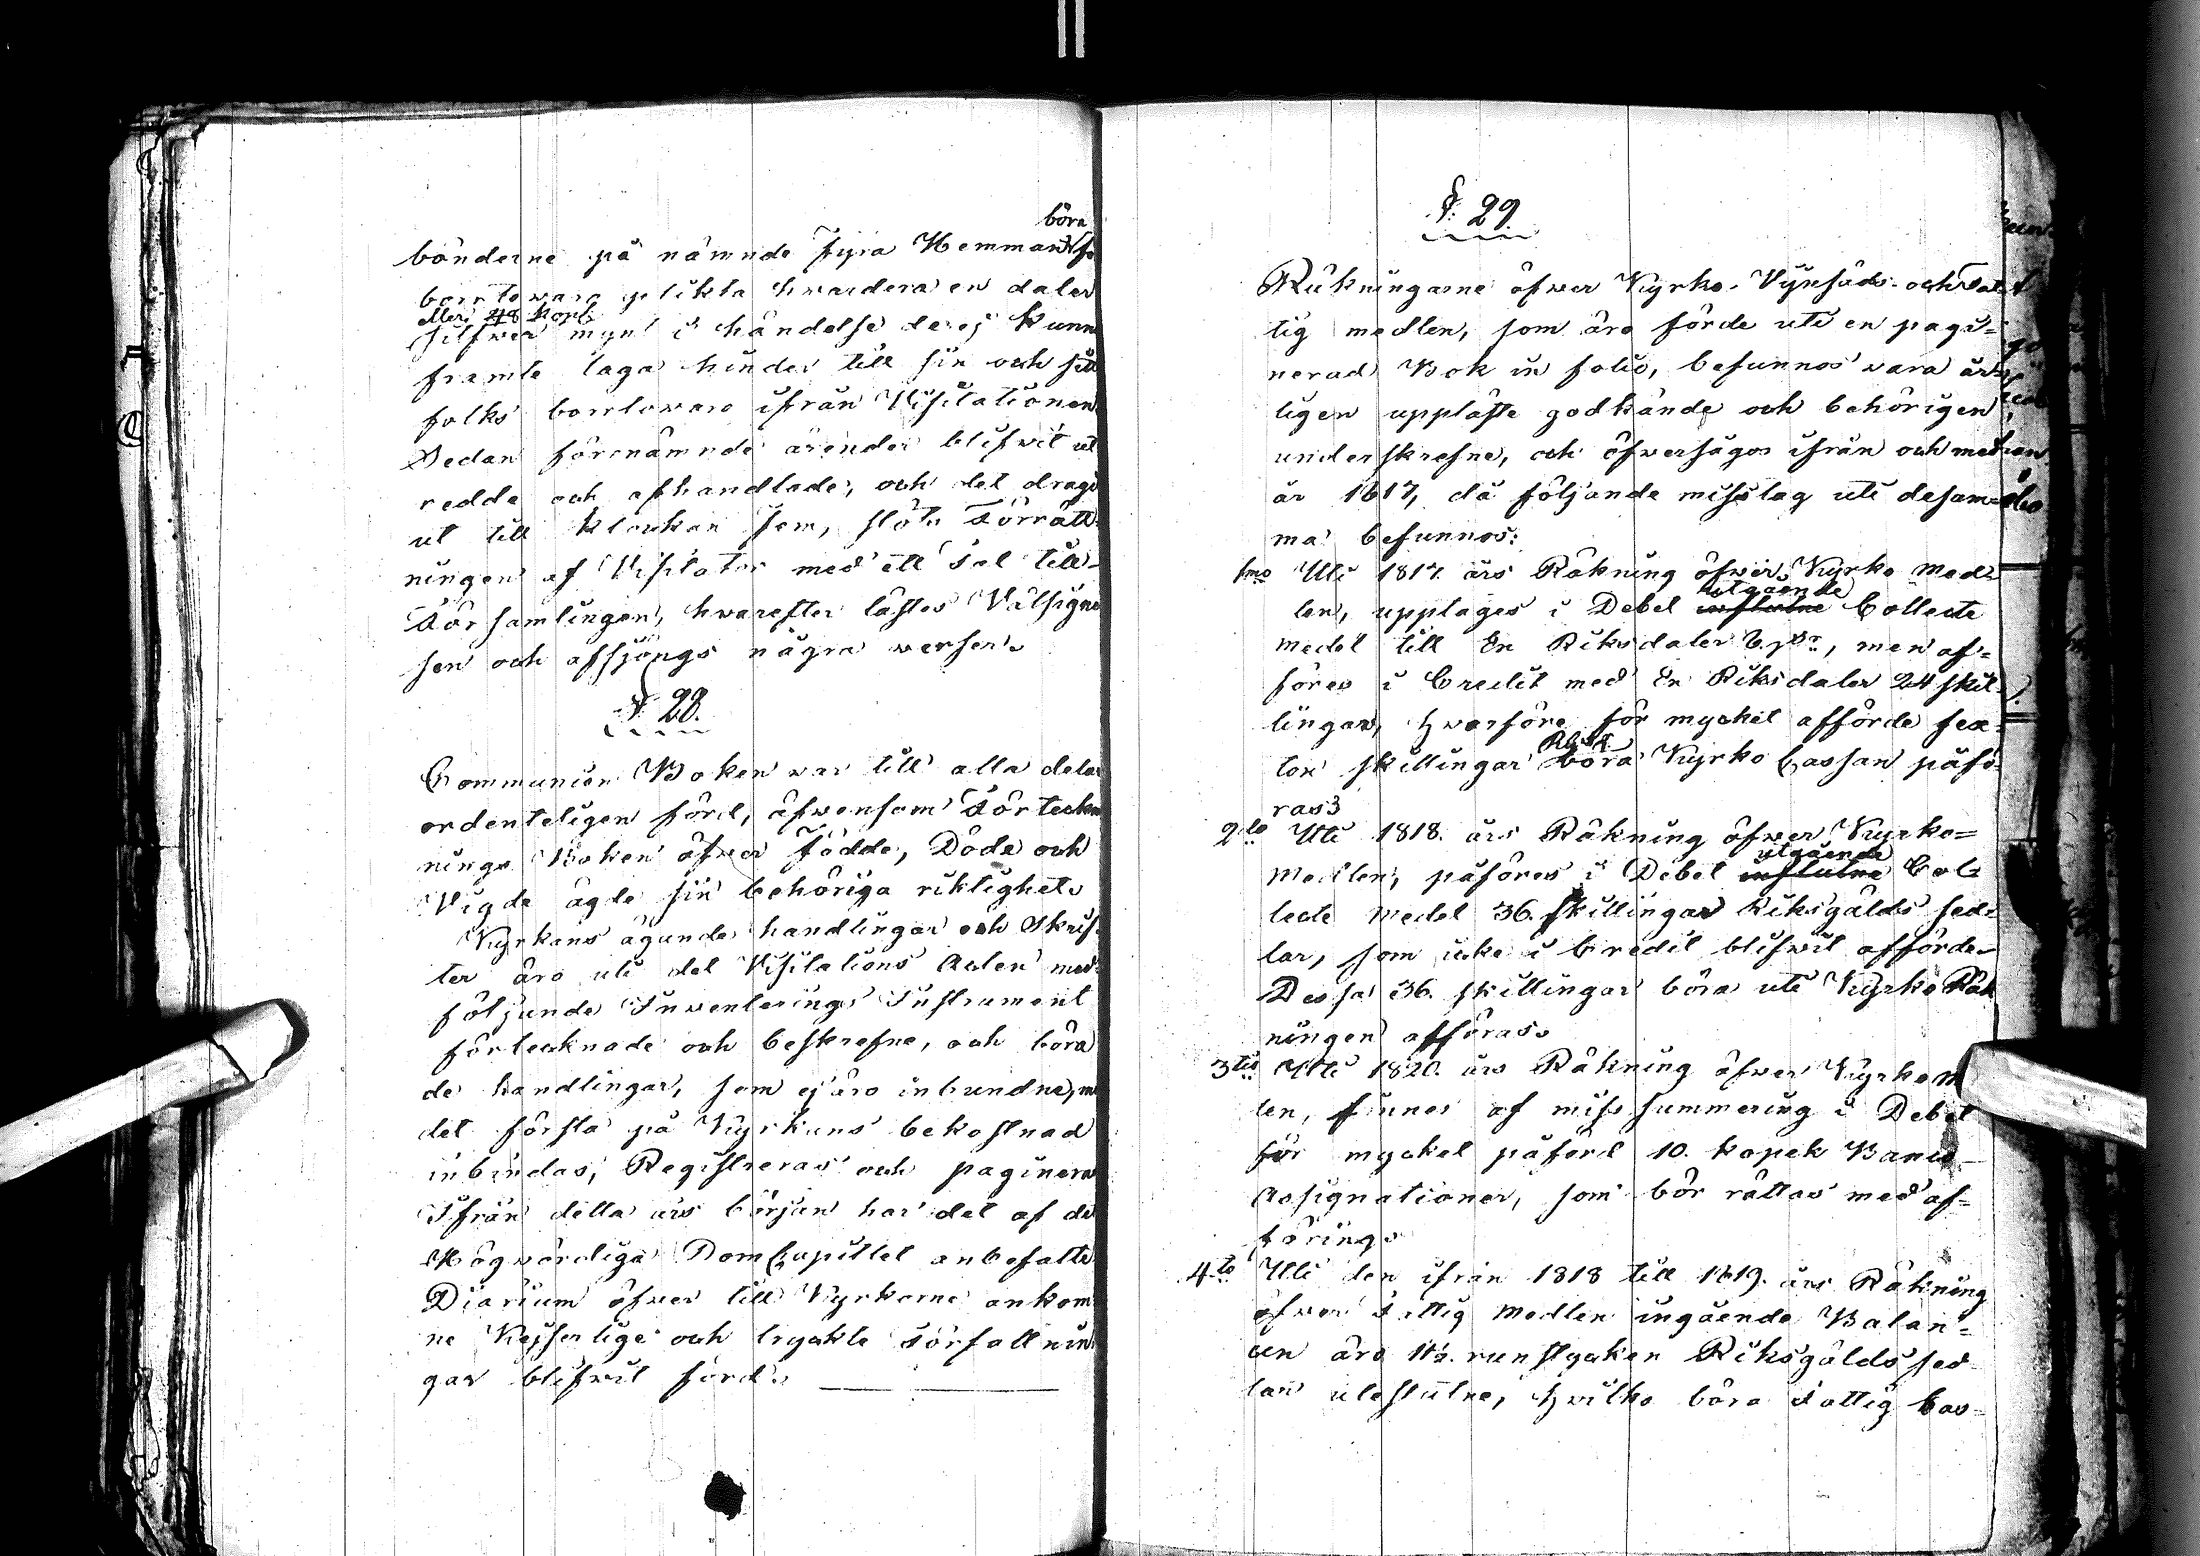 böra
bönderne på nämnde fyra Hemman för
borrtowaro plikta hwardera en daler
eller 48 kop:
silfwer mynt i händelse de ej kunn
framte laga hinder till sin och sitt
folks borrtowaro ifrån Visitationen.
Sedan förenämnde ärender blifwit ut
redde och afhandlade, och det dragit
ut till klockan fem, slöts Förrätt-
ningen af Visitator med ett tal till
Församlingen, hwarefter lästes Välsigne
sen och afsjöngs några werser.
§ 28.
Communion Boken war till alla delar
ordenteligen förd, äfwensom Förteckn
nings Boken öfwer Födde, Döde och
Vigde ägde sin behöriga riktighet.
Kyrkans ägande handlingar och Skrif-
ter äro uti det Visitations Acten med-
följande Inventerings Instrument
förtecknade och beskrefne, och böra
de handlingar, som ej äro inbundne, m
det första på Kyrkans bekostnad
inbindas, Registreras och pagineras
Ifrån detta års början har det af de
Högwördiga DomCapitlet anbefalte
Diarium öfwer till Kyrkorne ankom
ne Kejserlige och tryckte Författnin
gar blifwit förd.
§ 29.
Räkningarne öfwer Kyrko- Vijnsäds- och Fat-
tig medlen, som äro förde uti en pagi-
nerad Bok in folio, befunnos wara är-
ligen uppläste godkände och behörigen
underskrefne, och öfwersågos ifrån och med
år 1817, då följande misslag uti desam-
ma befunnos:
1mo Uti 1817 års Räkning öfwer Kyrko med-
utgående
len, upptages i Debet influtne Collecte
medel till En Riksdaler Bco, men af-
föres i Credit med En Riksdaler 24 skil-
lingar, hwarföre för myckit afförde sex-
ton skillingar böra Kyrko Cassan påfö-
ras;
2do Uti 1818. års Räkning öfwer Kyrko-
utgående
Medlen, påföres i Debet influtne Col-
lecte Medel 36. Skillingar Riksgälds sed-
lar, som icke i Credit blifwit afförde.
Dessa 36. skillingar böra uti Kyrko Räk
ningen afföras.
3tio Uti 1820. års Räkning öfwer Kyrko m
len, finnes af miss summering i Debet
för myckel påförd 10. kopek Banco
Assignationer, som bör rättas med af-
föring.
4to Uti den ifrån 1818 till 1819. års Räkning
öfwer Fattig Medlen ingående Balan-
cen äro 11½. runstycken Riksgälds sed-
lar uteslutne, hwilka böra Fattig Cas-